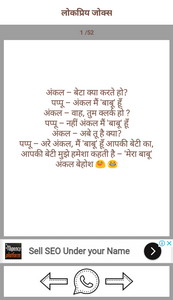 लोकप्रिय जोक्स
1 /52
अंकल – बेटा क्या करते हो?
पप्पू – अंकल मैं 'बाबू' हूँ
अंकल – वाह, तुम क्लर्क हो ?
पप्पू – नहीं अंकल मैं 'बाबू' हूँ
अंकल – अबे तू है क्या?
पप्पू – अरे अंकल, मैं 'बाबू' हूँ आपकी बेटी का,
आपकी बेटी मुझे हमेशा कहती है – 'मेरा बाबू'
अंकल बेहोश 🤗 😊
Sell SEO Under your Name